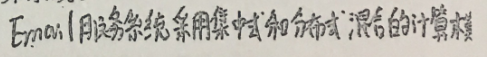 Email服务系统采用集中式和分布式混合的计算模